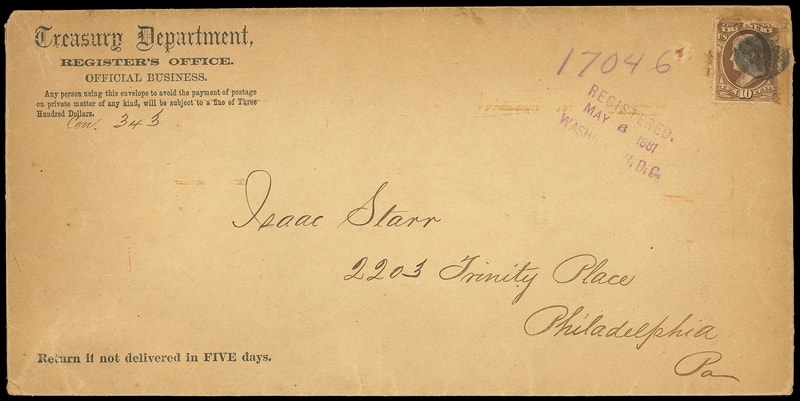 Treasury Department,
REGISTER'S OFFICE.
OFFICIAL BUSINESS.
Any person using this envelope to avoid the payment of postage
on private matter of any kind, will be subject to a fine of Three
Hundred Dollars.
Con. 343
17046
REGISTERED.
MAY 6 1881
D.C.
10
Isaac Starr
2203 Trinity Place
Philadelphia
Pa
Return if not delivered in FIVE days.